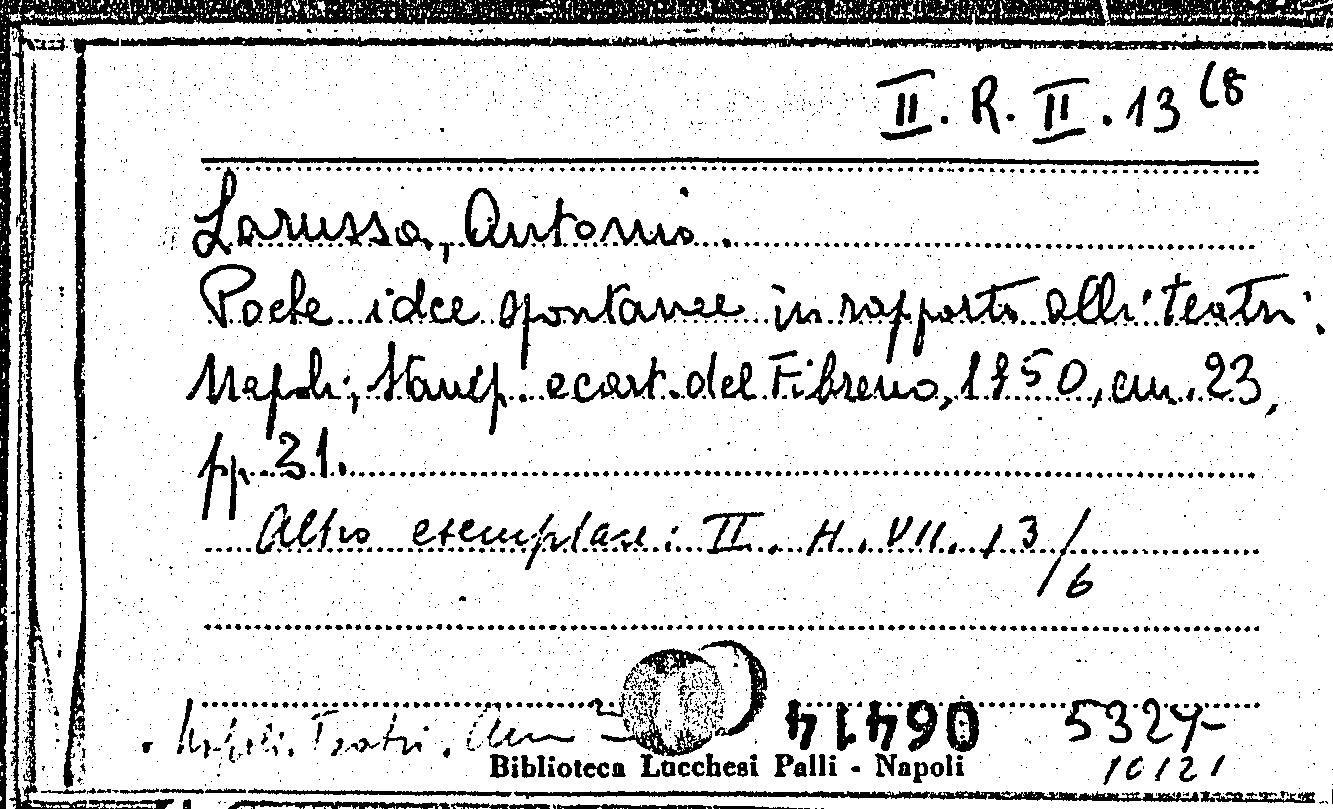 II. R. II. 13 (8
Larussa, Antonio.
Poche idee spontanee in rapporto alli teatri.
Napoli, Stamp. e cart. del Fibreno, 1850, cm. 23,
pp. 31.
Altro esemplare: II. H. VII. 13/6
. Napoli. Teatri. Amm
06414
5327
10121
Biblioteca Lucchesi Palli - Napoli